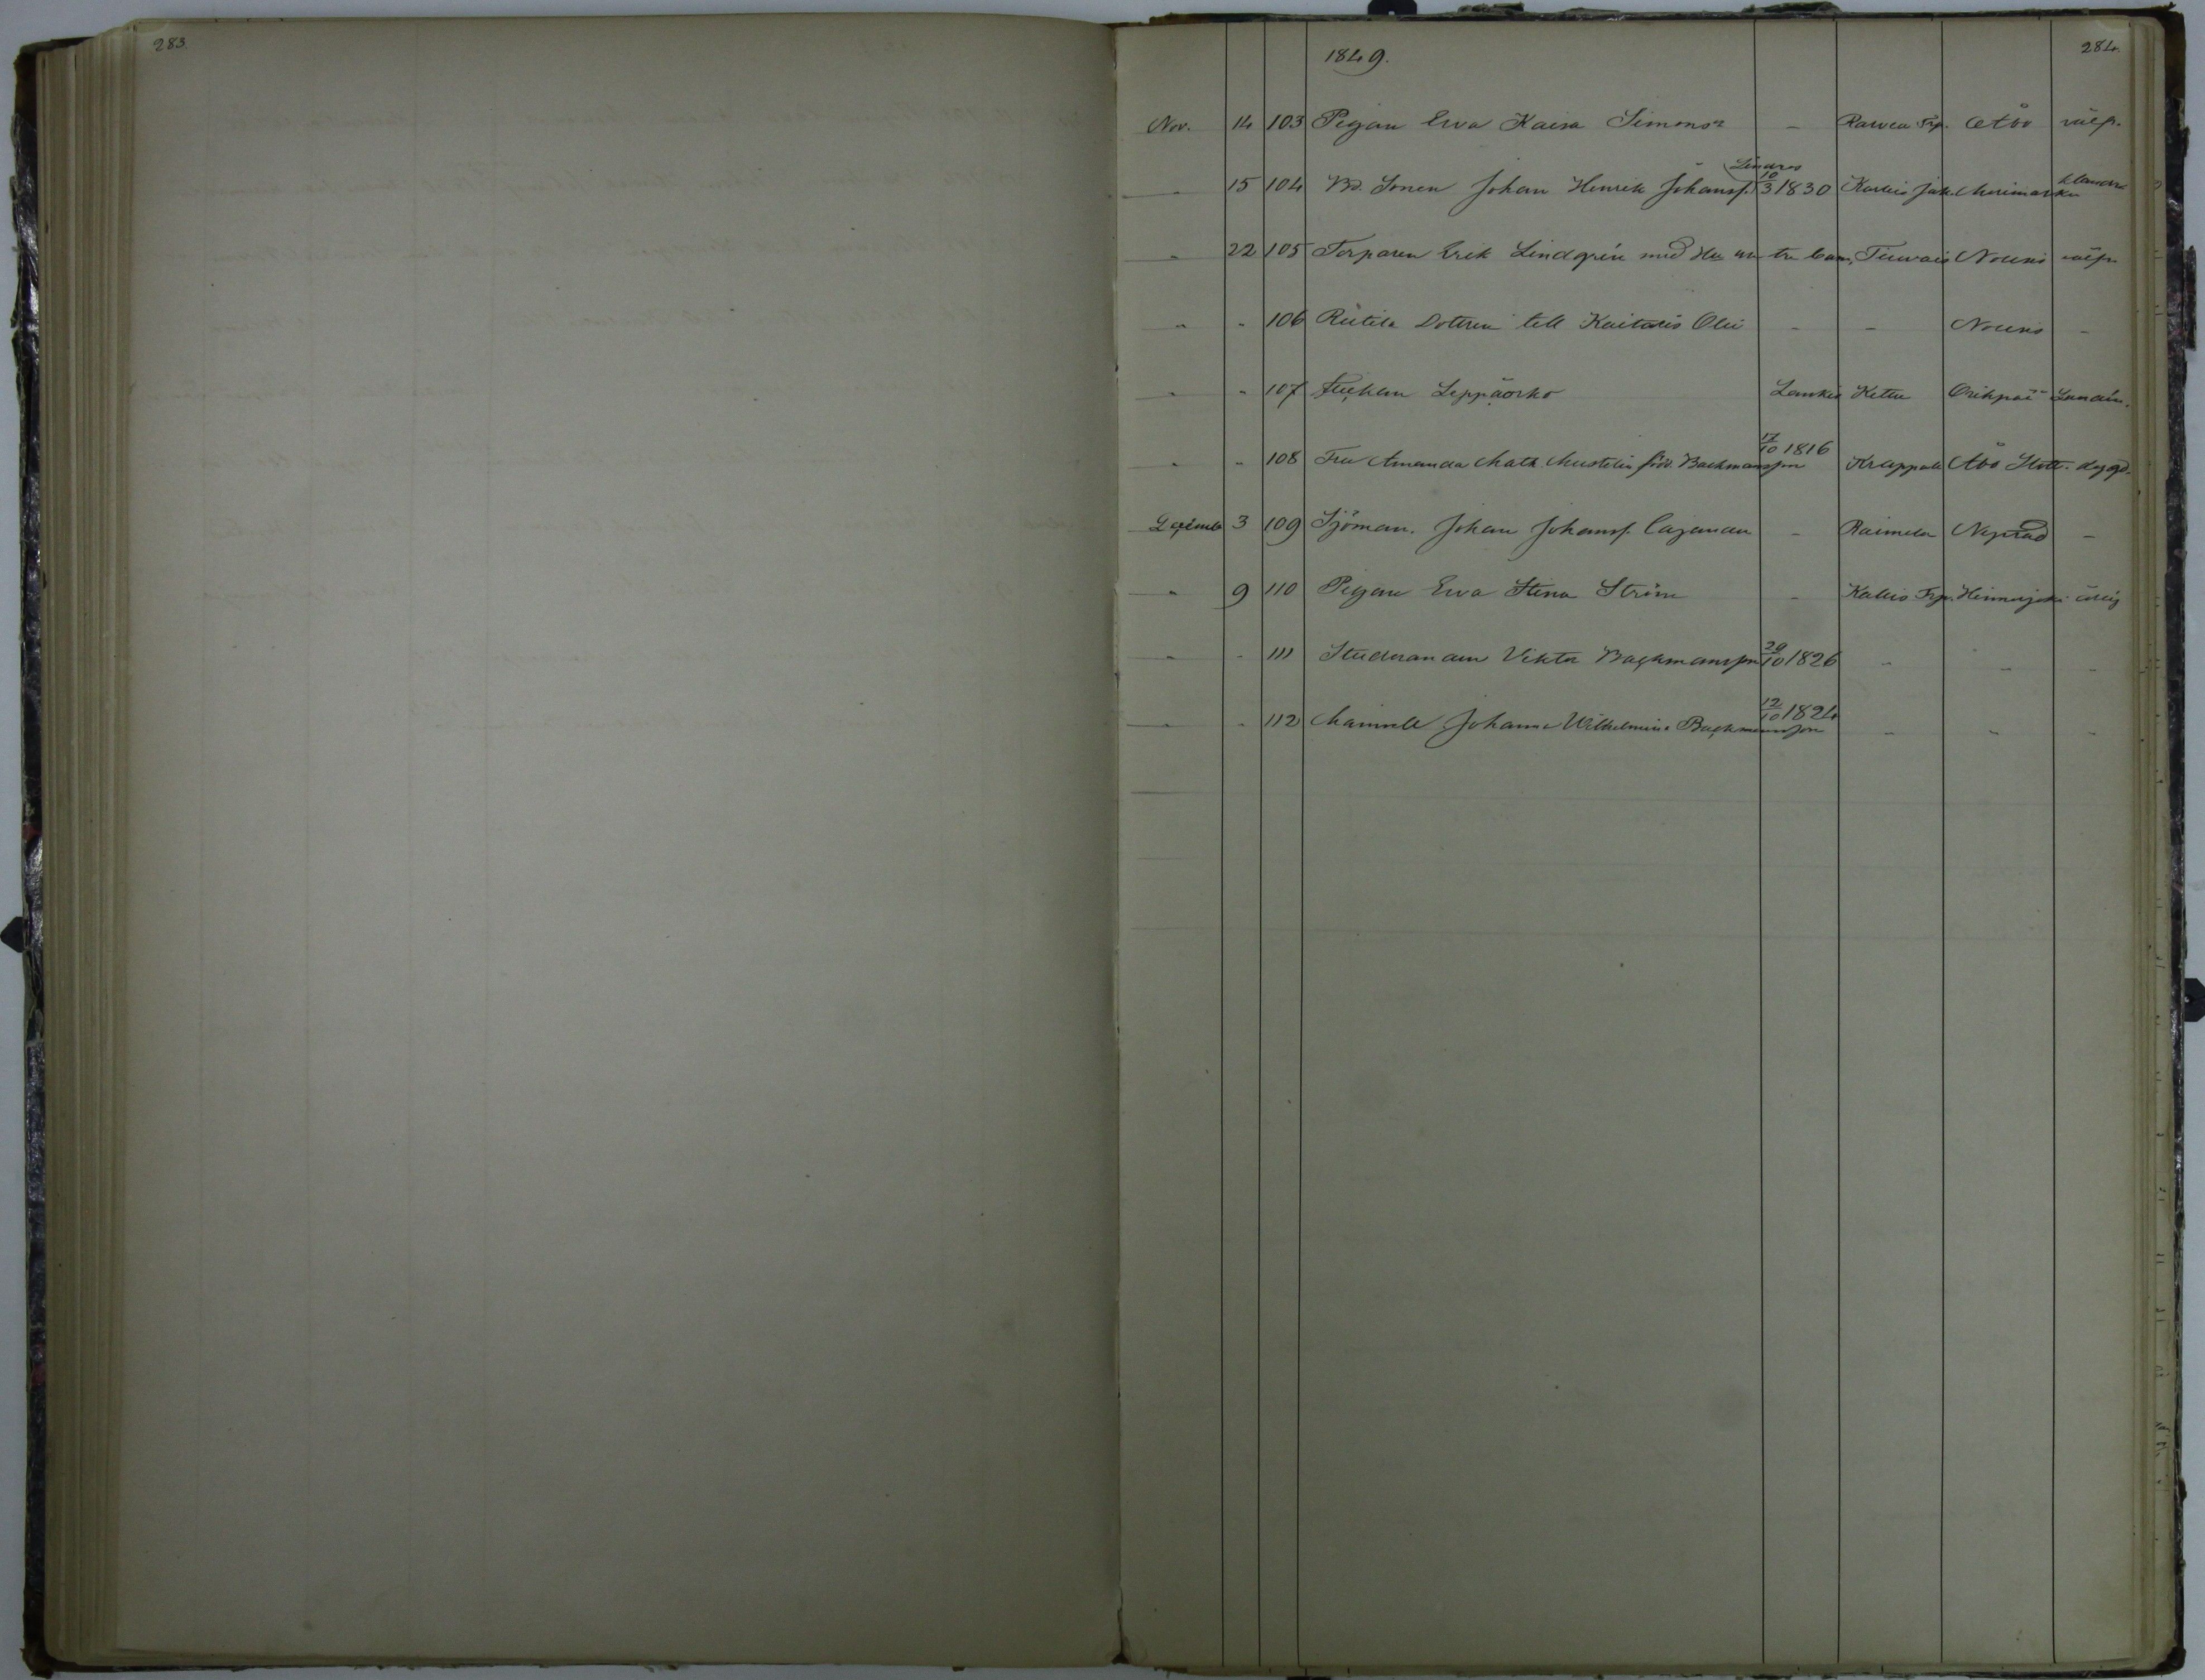 283.
1849. 284.
Nov. 14 103 Pigan Eva Kaisa Simonsr - Rawea Trp. Åbo välfr.
Lindros
" 15 104 Bd. Sonen Johan Henrik Johansf. 10/3 1830 Karkis Jak. Merimasku
" 22 105 Torparen Erik Lindgrén med Hu tre barn, Tiuvais Nouss välfr
" " 106 Riitila Dottren till Kaitaris Olii - - Nouss -
" " 107 Leppäorko Lankis Kettu Orihpää
" " 108 Fru Amanda Math. Mustelin född Backmansson 17/10 1816 Krappala Åbo Slott.
Decembr 3 109 Sjöman. Johan Johansf. Cajanan - Raimela Nystad -
" 9 110 Pigan Eva Stina Ström - Kallis Trp. Hinnerjoki
" " 111 Studeranden Viktor Backmansson 29/10 1826 " " "
" " 112 Mamsell Johanna Wilhelmina Backmansson 12/10 1824 " " "